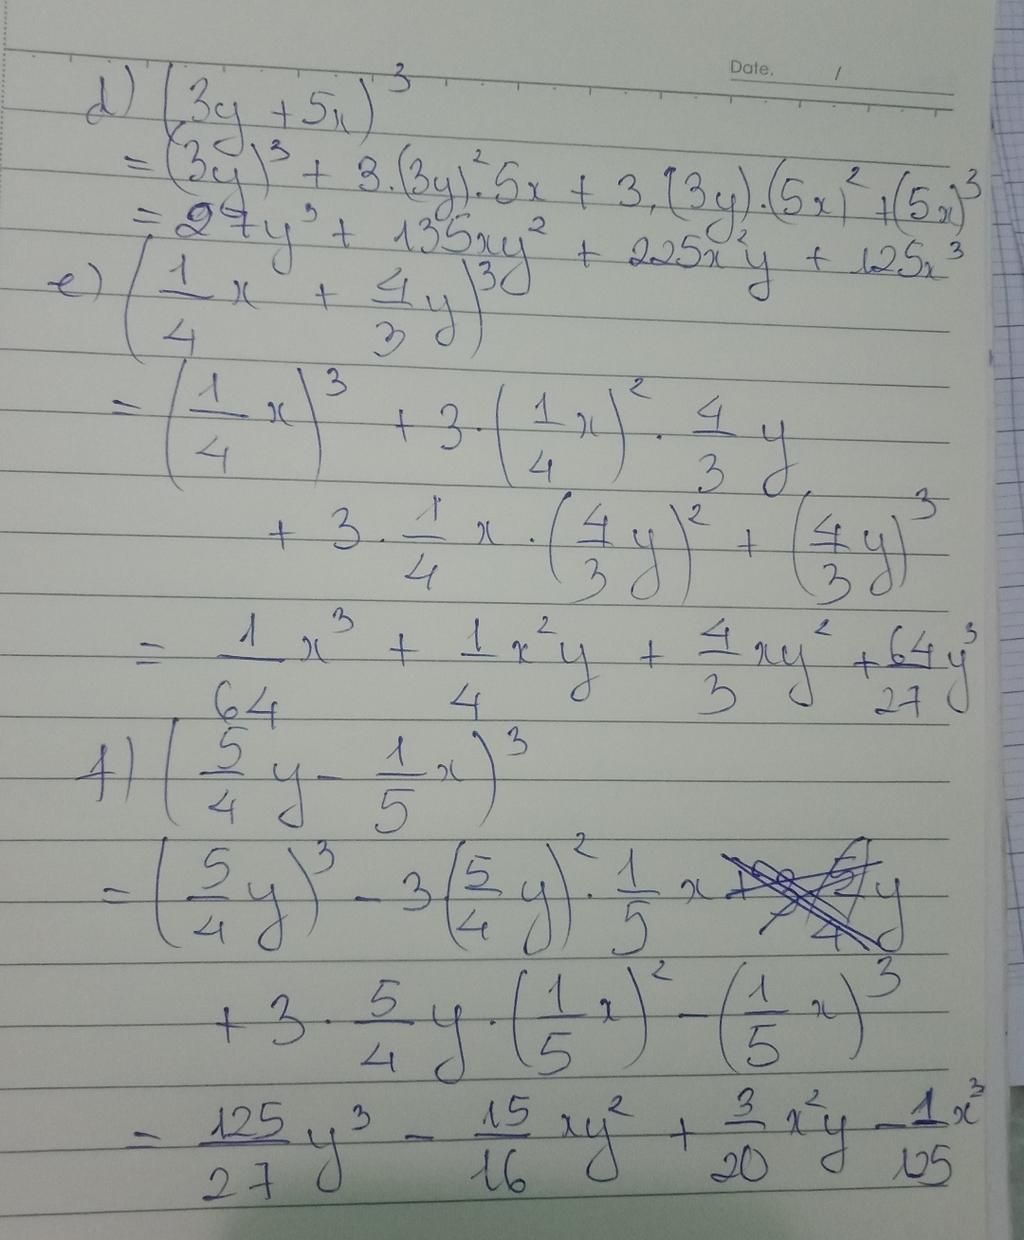 Date. /
d) (3y + 5x)³
= (3y)³ + 3.(3y)².5x + 3.(3y).(5x)² + (5x)³
= 27y³ + 135xy² + 225x²y + 125x³
e) (1/4 x + 4/3 y)³
= (1/4 x)³ + 3.(1/4 x)² . 4/3 y
+ 3 . 1/4 x . (4/3 y)² + (4/3 y)³
= 1/64 x³ + 1/4 x²y + 4/3 xy² + 64/27 y³
f) (5/4 y - 1/5 x)³
= (5/4 y)³ - 3(5/4 y)² . 1/5 x
+ 3 . 5/4 y . (1/5 x)² - (1/5 x)³
= 125/27 y³ - 15/16 xy² + 3/20 x²y - 1/125 x³